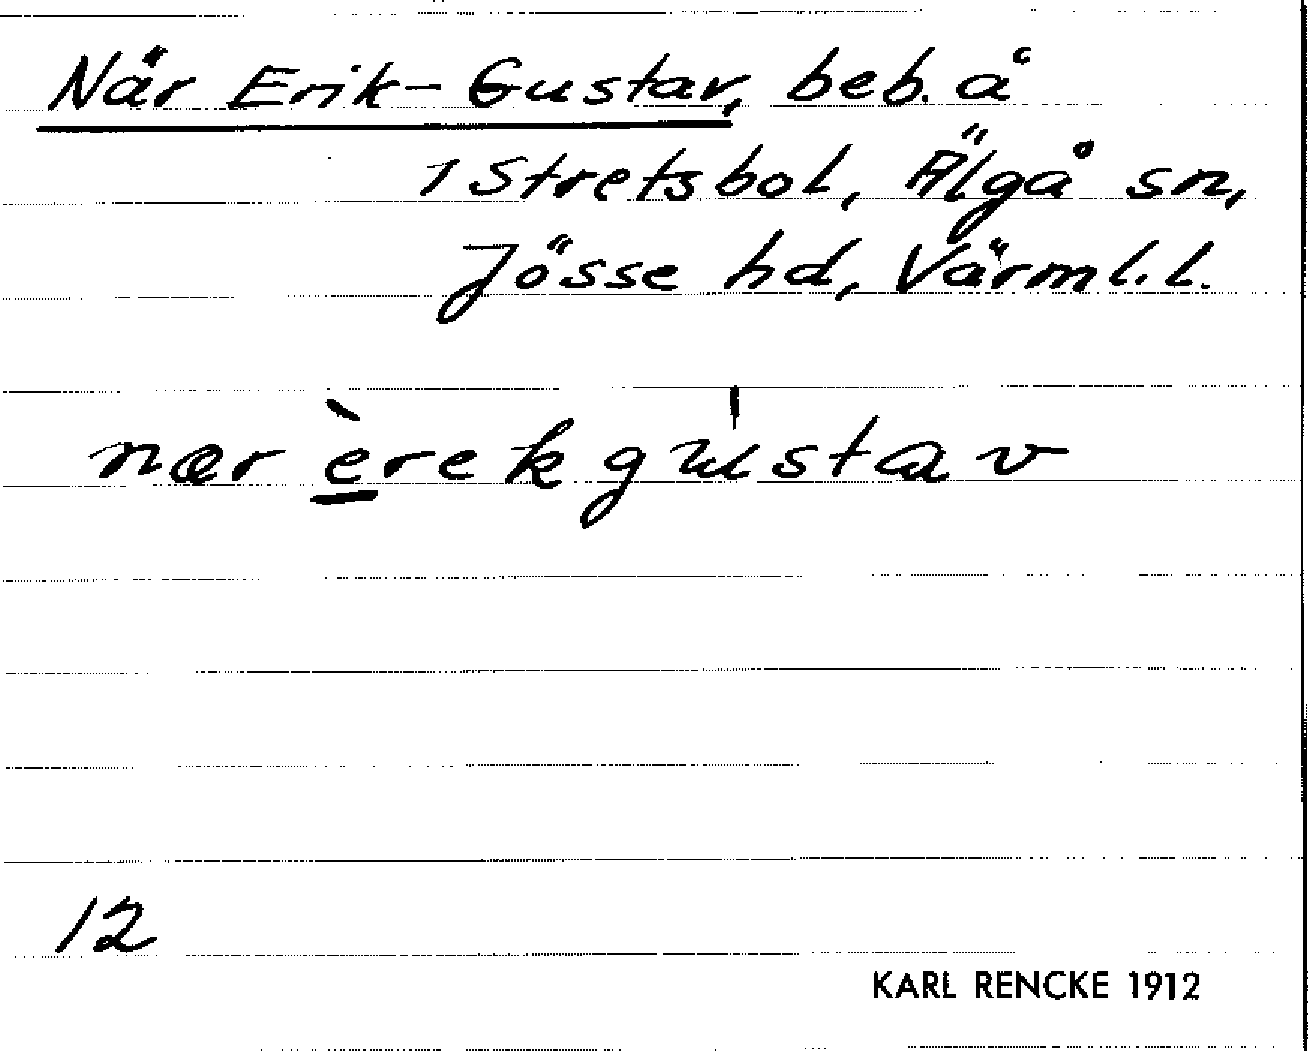 När Erik-Gustav, beb. å
1 Stretsbol, Älgå sn,
Jösse hd, Värml.l.
nær èrekgústav
12
KARL RENCKE 1912